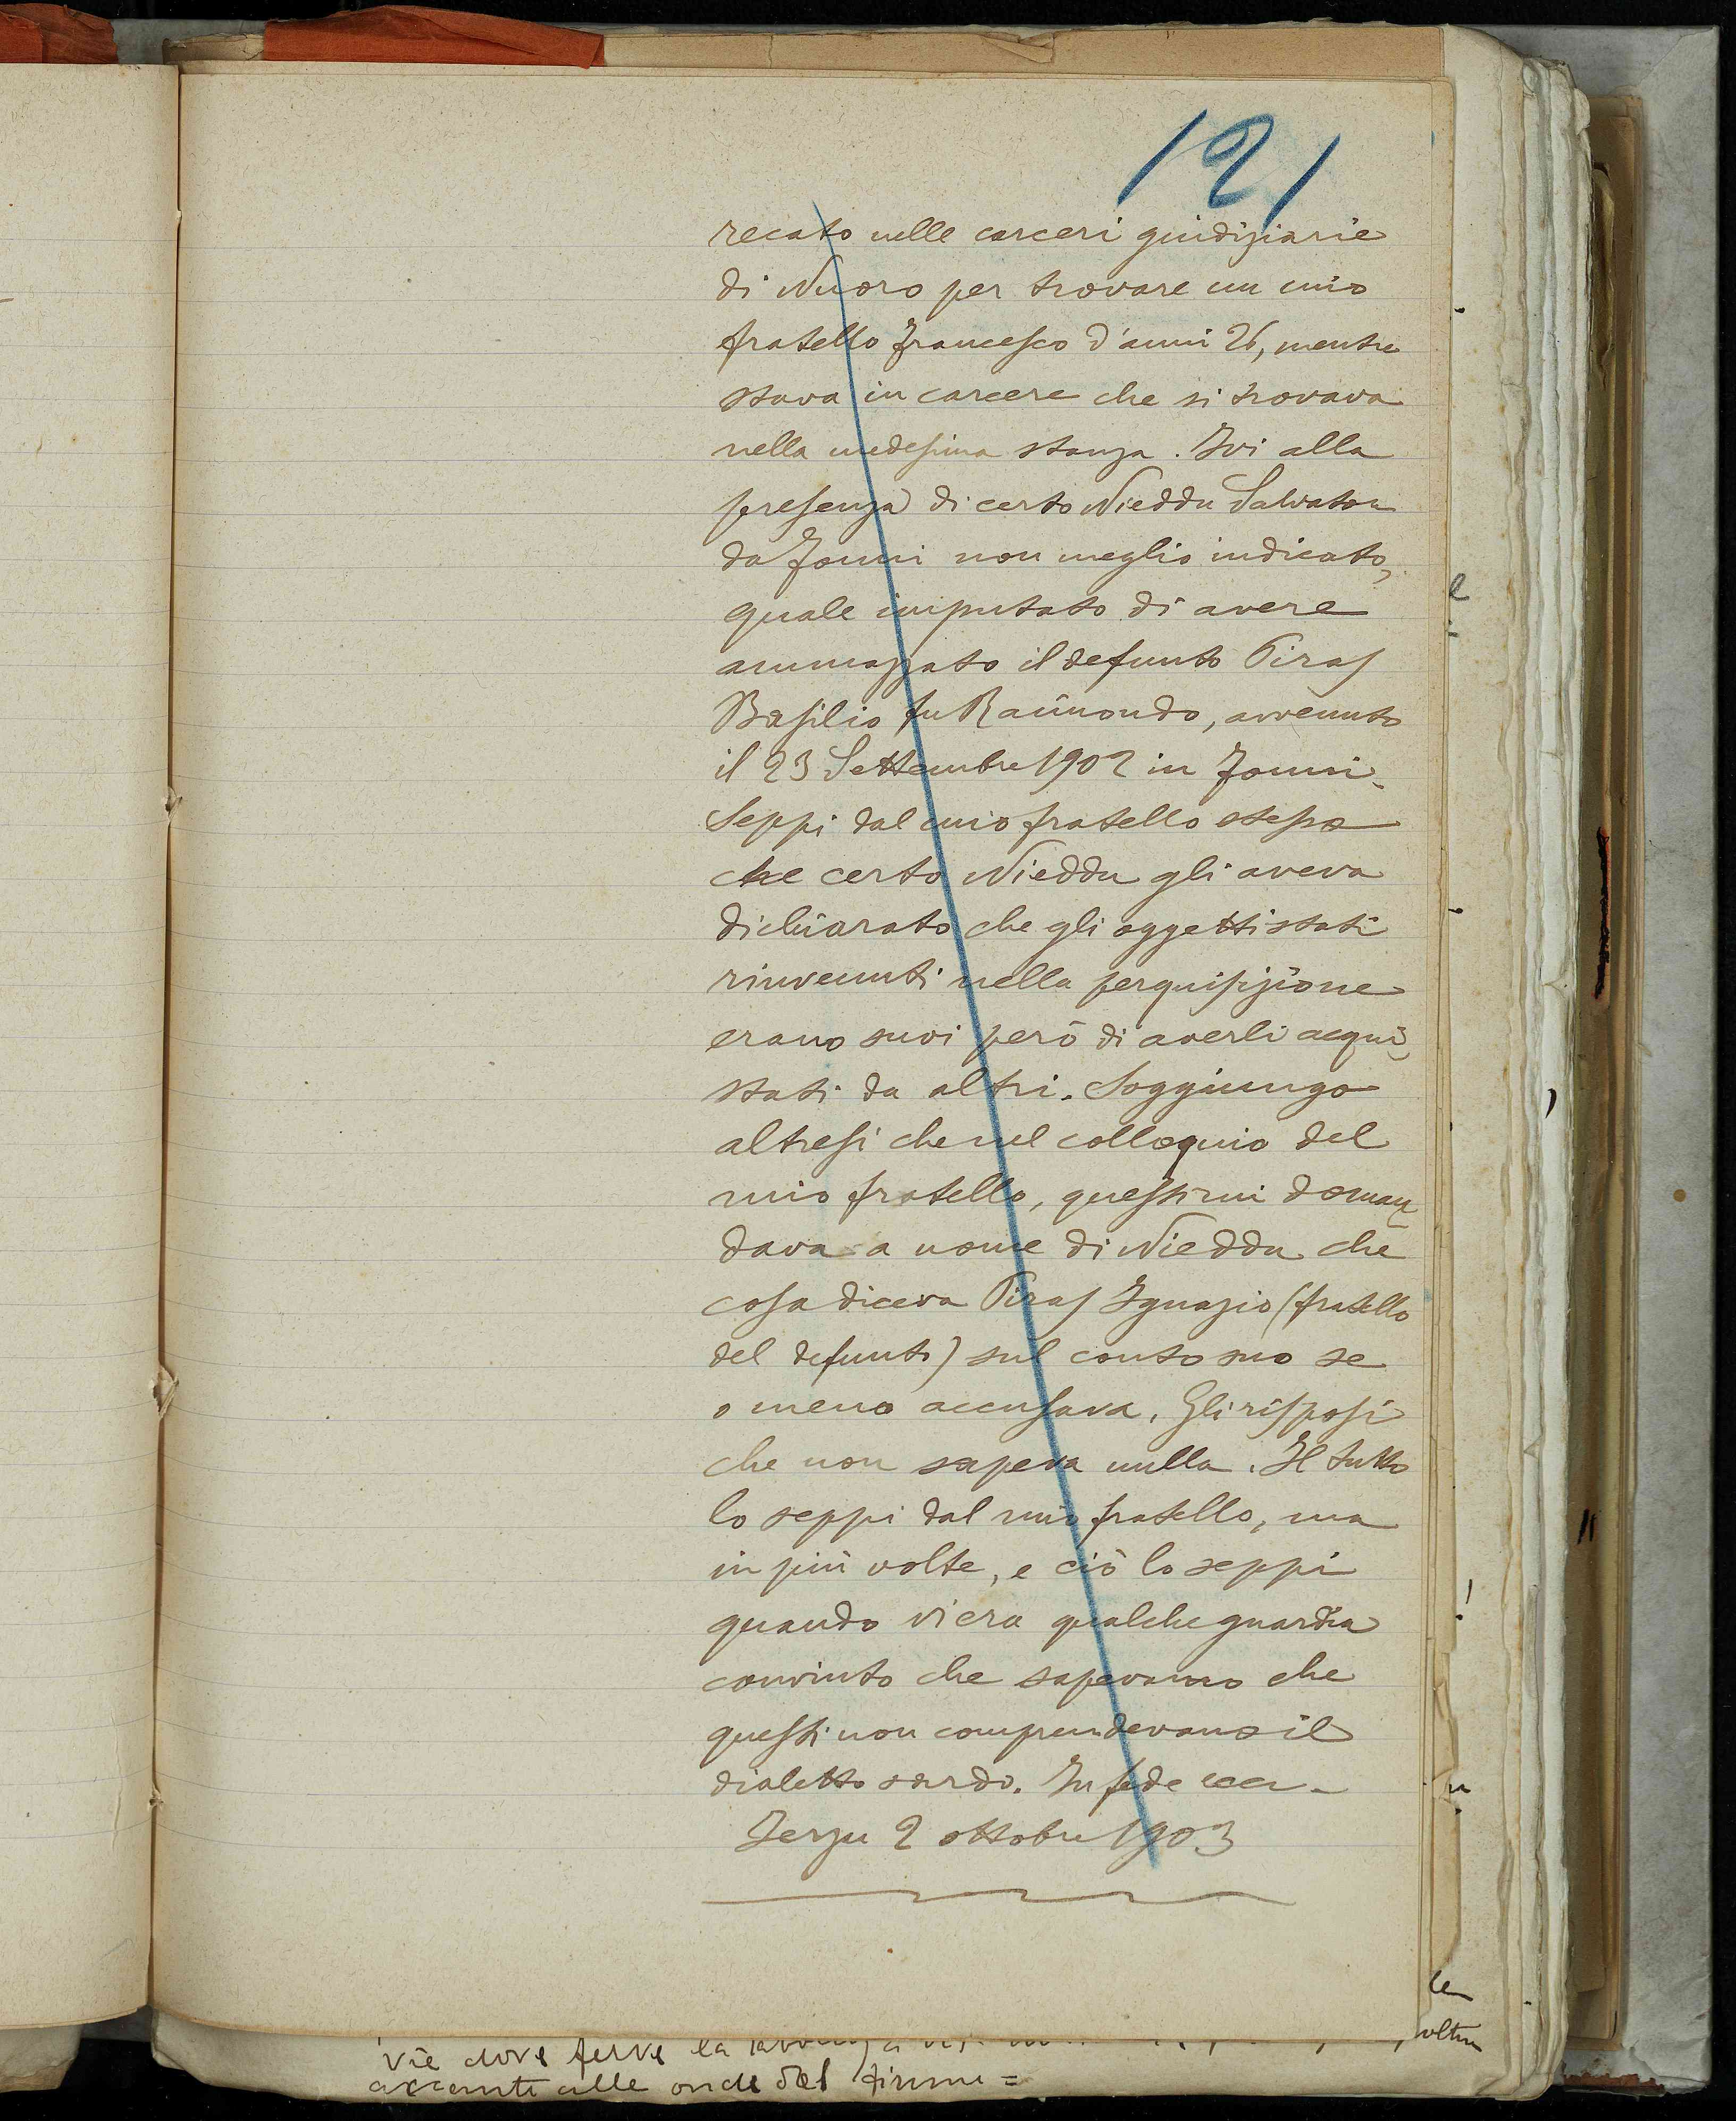 121
recato nelle carceri giudiziarie
di Nuoro per trovare un mio
fratello Francesco d'anni 26, mentre
stava in carcere che si trovava
nella medesima stanza. Ivi alla
presenza di certo Nieddu Salvatore
da Fonni non meglio indicato,
quale imputato di avere
ammazzato il defunto Piras
Basilio fu Raimondo, avvenuto
il 23 Settembre 1902 in Fonni.
Seppi dal mio fratello stesso
che certo Nieddu gli aveva
dichiarato che gli oggetti stati
rinvenuti nella perquisizione
erano suoi però di averli acqui
stati da altri. Soggiungo
altresi che nel colloquio del
mio fratello, questi mi doman
dava a nome di Nieddu che
cosa diceva Piras Ignazio (fratello
del defunto) sul conto suo se
o meno accusava. Gli risposi
che non sapeva nulla. Il tutto
lo seppi dal mio fratello, ma
in più volte, e ciò lo seppi
quando vi era qualche guardia
convinto che sapevamo che
questi non comprendevano il
dialetto sardo. In fede ecc.
Jerzu 2 ottobre 1903
vie dove ferve la
alle onde del fiume =